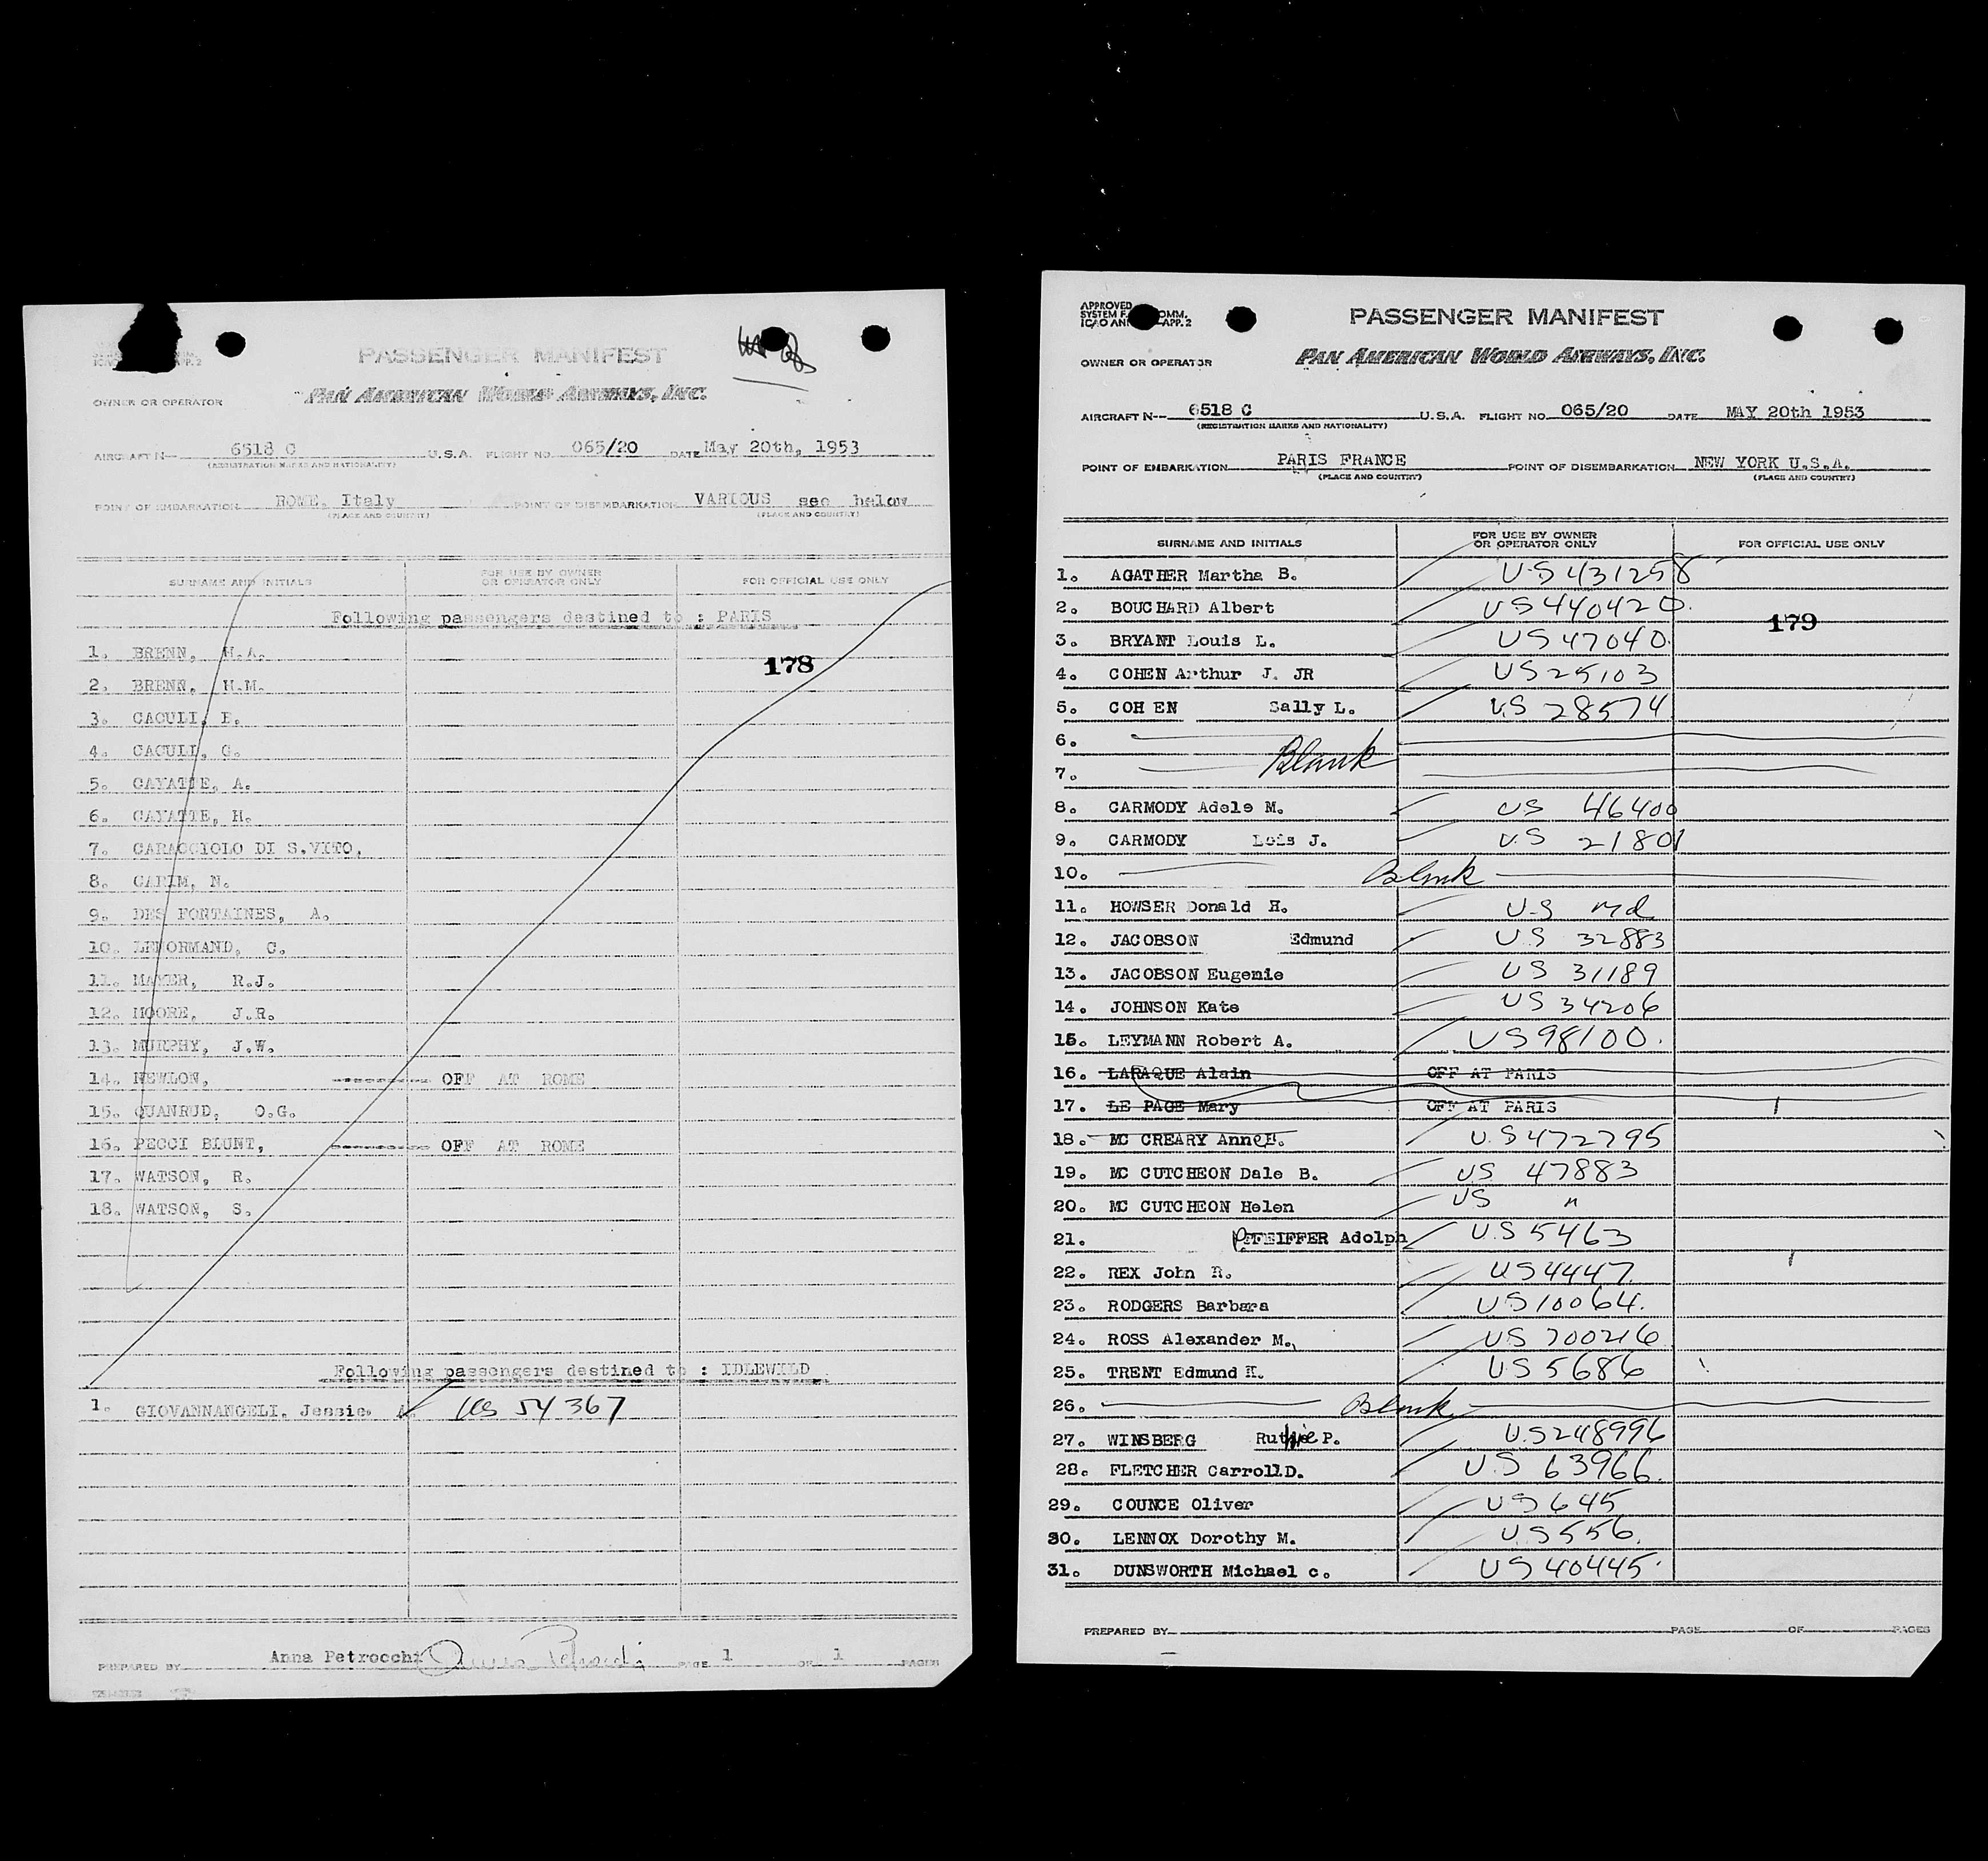 PASSENGER MANIFEST
OWNER OR OPERATOR PAN AMERICAN WORLD AIRWAYS, INC.
AIRCRAFT N— 6518 C U.S.A. FLIGHT NO. 065/20 DATE May 20th, 1953
(REGISTRATION MARKS AND NATIONALITY)
POINT OF EMBARKATION ROME, Italy POINT OF DISEMBARKATION VARIOUS see below
(PLACE AND COUNTRY) (PLACE AND COUNTRY)
SURNAME AND INITIALS FOR USE BY OWNER OR OPERATOR ONLY FOR OFFICIAL USE ONLY
Following passengers destined to : PARIS
1. BRENN, H.A.
178
2. BRENN, H.M.
3. CACULI, E.
4. CACULI, G.
5. CAYATTE, A.
6. CAYATTE, H.
7. CARACCIOLO DI S.VITO,
8. CARIM, N.
9. DES FONTAINES, A.
10. LENORMAND, C.
11. MAYER, R.J.
12. MOORE, J.R.
13. MURPHY, J.W.
14. NEWLON, --------- OFF AT ROME
15. QUANRUD, O.G.
16. PECCI BLUNT, --------- OFF AT ROME
17. WATSON, R.
18. WATSON, S.
Following passengers destined to : IDLEWILD
1. GIOVANNANGELI, Jessie A. US 54367
PREPARED BY Anna Petrocchi Anna Petrocchi PAGE 1 OF 1 PAGES
APPROVED
SYSTEM F. COMM.
ICAO ANN APP. 2
PASSENGER MANIFEST
OWNER OR OPERATOR PAN AMERICAN WORLD AIRWAYS, INC.
AIRCRAFT N— 6518 C U.S.A. FLIGHT NO. 065/20 DATE MAY 20th 1953
(REGISTRATION MARKS AND NATIONALITY)
POINT OF EMBARKATION PARIS FRANCE POINT OF DISEMBARKATION NEW YORK U.S.A.
(PLACE AND COUNTRY) (PLACE AND COUNTRY)
SURNAME AND INITIALS FOR USE BY OWNER OR OPERATOR ONLY FOR OFFICIAL USE ONLY
1. AGATHER Martha B. US431258
2. BOUCHARD Albert US440420.
179
3. BRYANT Louis L. US47040.
4. COHEN Arthur J. JR US25103
5. COHEN Sally L. US 28574
6.
7. Blank
8. CARMODY Adele M. US 46400
9. CARMODY Lois J. US 21801
10. Blank
11. HOWSER Donald H. US md
12. JACOBSON Edmund US 32883
13. JACOBSON Eugenie US 31189
14. JOHNSON Kate US 34206
15. LEYMANN Robert A. US98100.
16. LARAQUE Alain OFF AT PARIS
17. LE PAGE Mary OFF AT PARIS
18. MC CREARY Anne H. US472795
19. MC CUTCHEON Dale B. US 47883
20. MC CUTCHEON Helen US "
21. PFEIFFER Adolph US5463
22. REX John R. US4447.
23. RODGERS Barbara US10064.
24. ROSS Alexander M. US 700216
25. TRENT Edmund K. US5686
26. Blank
27. WINSBERG Ruthie P. US248996
28. FLETCHER Carroll D. US 63966.
29. COUNCE Oliver US645
30. LENNOX Dorothy M. US556.
31. DUNSWORTH Michael c. US40445.
PREPARED BY PAGE OF PAGES